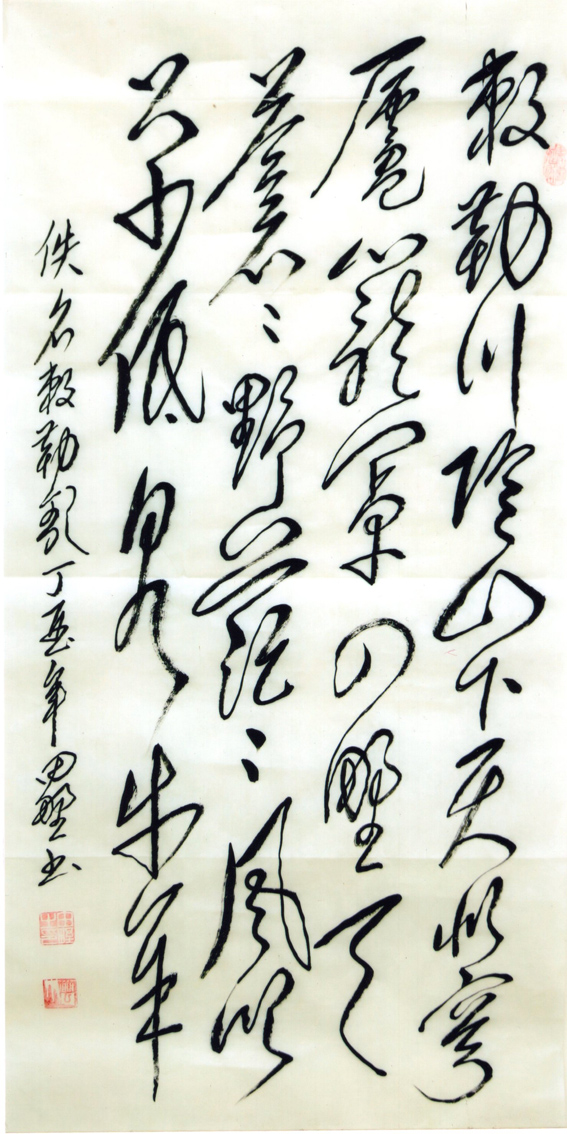 敕勒川陰山下天似穹
廬籠罩四野天
蒼〻野茫〻風吹
草低見牛羊
佚名敕勒歌丁酉年田野书